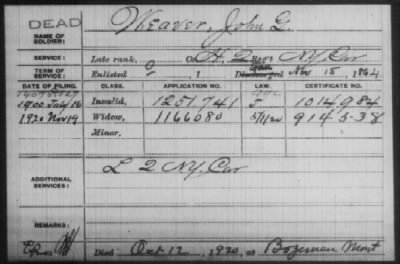 DEAD
NAME OF SOLDIER:
Weaver, John G.
SERVICE:
Late rank, Co. H, 2 Reg't N.Y. Cav
TERM OF SERVICE:
Enlisted , 1 Discharged Nov 15 1864
DATE OF FILING. CLASS. APPLICATION NO. LAW. CERTIFICATE NO.
1900 July 16 Invalid, 1251,741 1014,984
1920 Nov 19 Widow, 1166080 914538
Minor,
ADDITIONAL SERVICES:
L 2 N.Y. Cav
REMARKS:
Died Oct 12, 1920, at Bozeman Mont